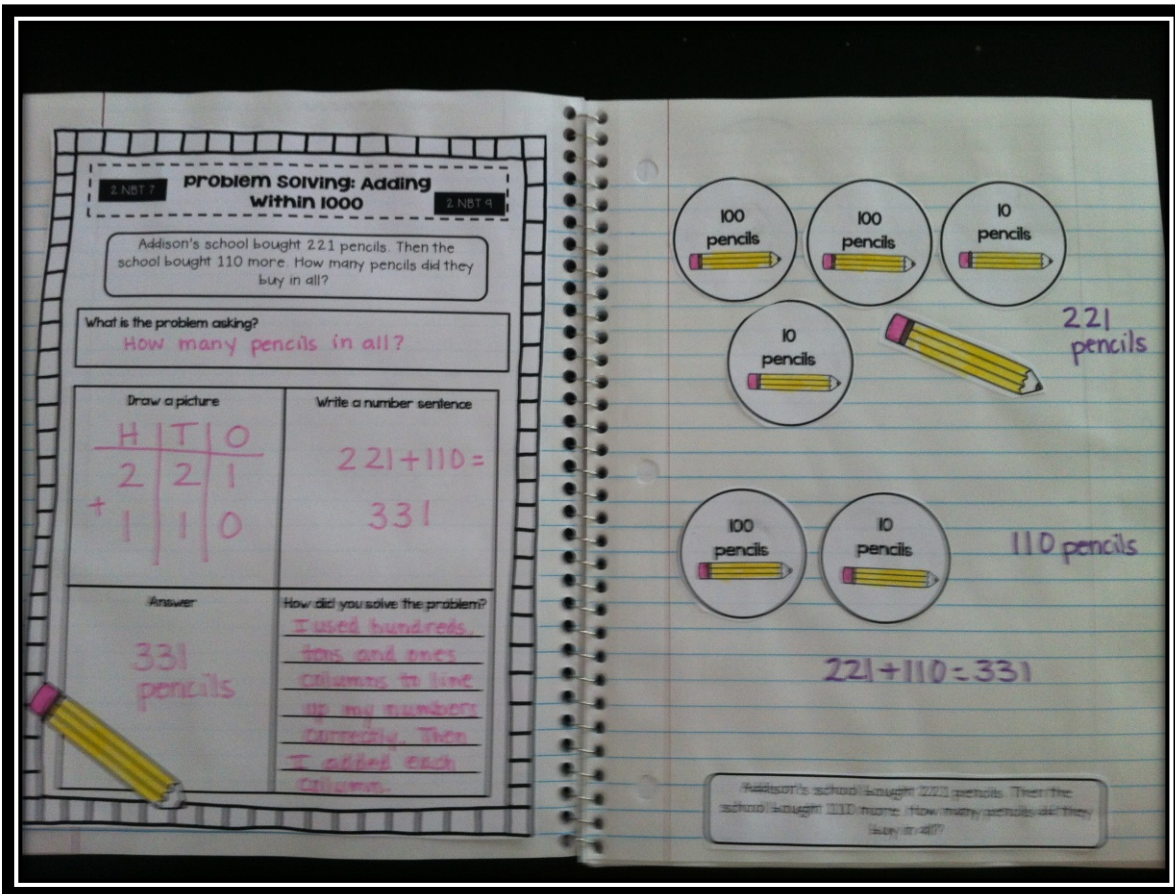 2 NBT 7
Problem Solving: Adding
Within 1000
2 NBT 9
Addison's school bought 221 pencils. Then the
school bought 110 more. How many pencils did they
buy in all?
What is the problem asking?
How many pencils in all?
Draw a picture
H T O
2 2 1
+ 1 1 0
Write a number sentence
221+110=
331
Answer
331
pencils
How did you solve the problem?
I used hundreds,
tens and ones
columns to line
up my numbers
correctly. Then
I added each
column.
100
pencils
100
pencils
10
pencils
10
pencils
221
pencils
100
pencils
10
pencils
110 pencils
221+110=331
Addison's school bought 221 pencils. Then the
school bought 110 more. How many pencils did they
buy in all?